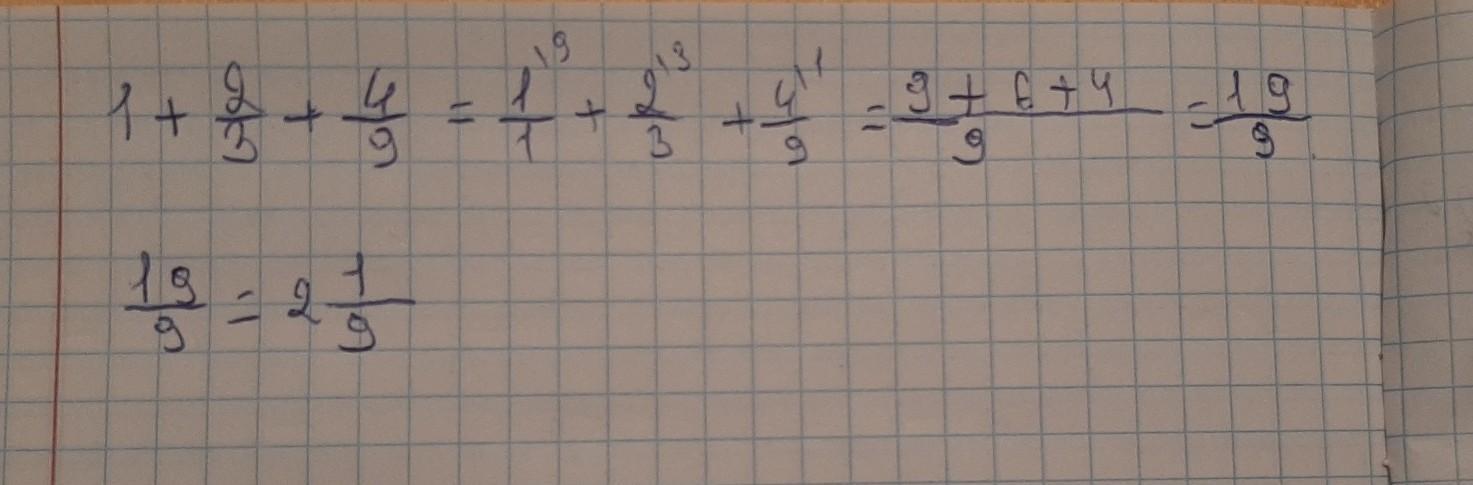 1 + 2/3 + 4/9 = 1\9/1 + 2\3/3 + 4\1/9 = 9 + 6 + 4/9 = 19/9
19/9 = 2 1/9